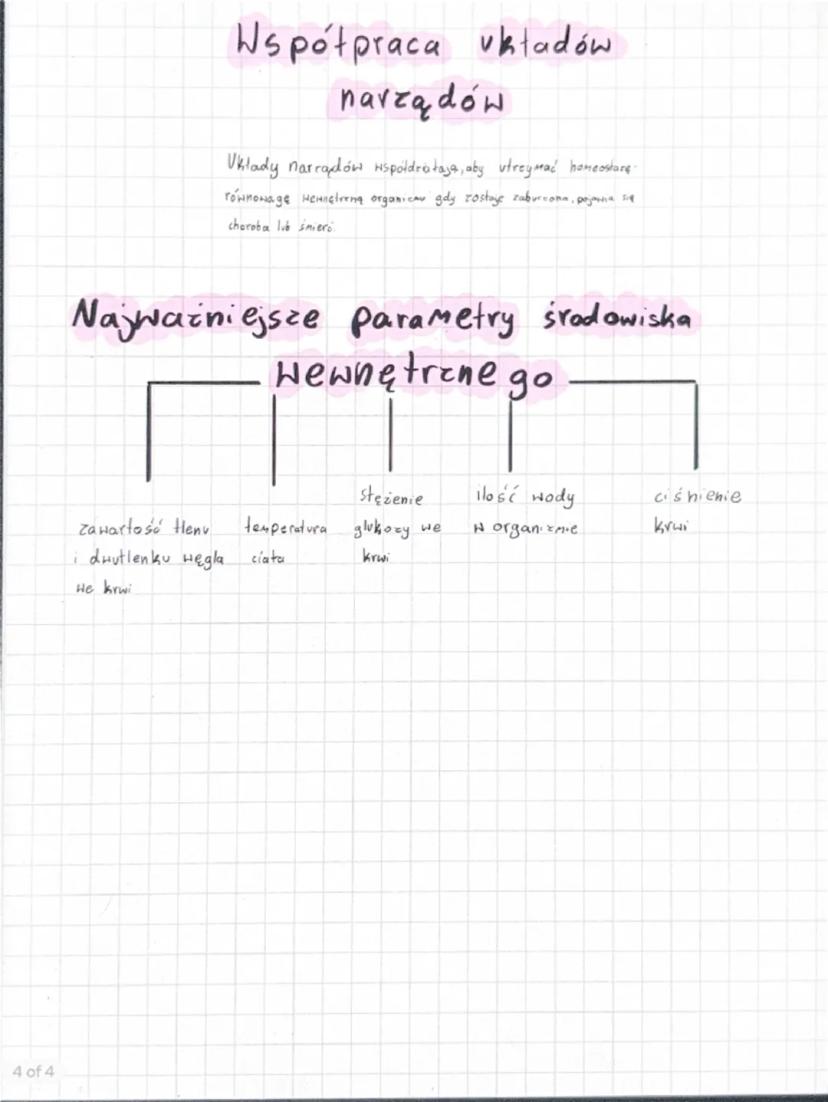 Współpraca układów
narządów
Układy narządów współdziałają, aby utrzymać homeostazę-
równowagę wewnętrzną organizmu gdy zostaje zaburzona, pojawia się
choroba lub śmierć.
Najważniejsze parametry środowiska
wewnętrznego
zawartość tlenu
i dwutlenku węgla
we krwi
temperatura
ciała
stężenie
glukozy we
krwi
ilość wody
w organizmie
ciśnienie
krwi
4 of 4